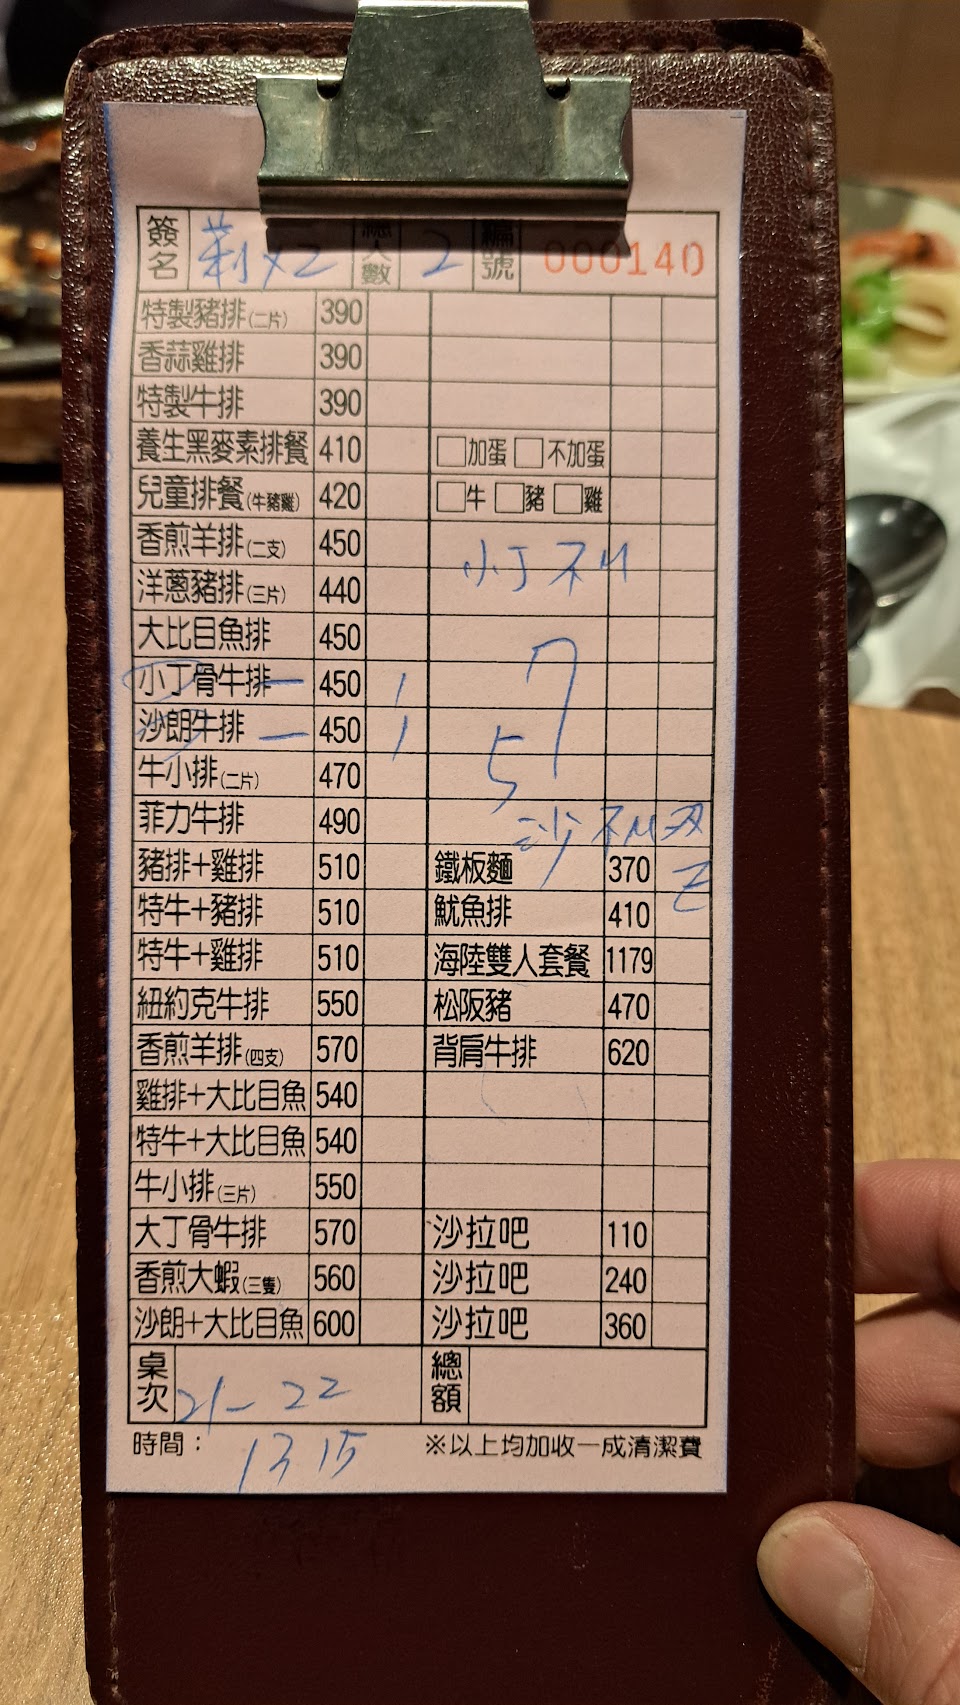 簽名 總人數 2 編號 000140
特製豬排(二片) 390
香蒜雞排 390
特製牛排 390
養生黑麥素排餐 410 □加蛋 □不加蛋
兒童排餐(牛豬雞) 420 □牛 □豬 □雞
香煎羊排(二支) 450
小丁
洋蔥豬排(三片) 440
大比目魚排 450
小丁骨牛排 450 1 7
沙朗牛排 450 1 5
牛小排(二片) 470
菲力牛排 490 沙
豬排+雞排 510 鐵板麵 370
特牛+豬排 510 魷魚排 410
特牛+雞排 510 海陸雙人套餐 1179
紐約克牛排 550 松阪豬 470
香煎羊排(四支) 570 背肩牛排 620
雞排+大比目魚 540
特牛+大比目魚 540
牛小排(三片) 550
大丁骨牛排 570 沙拉吧 110
香煎大蝦(三隻) 560 沙拉吧 240
沙朗+大比目魚 600 沙拉吧 360
桌次 21-22 總額
時間： 13 15 ※以上均加收一成清潔費